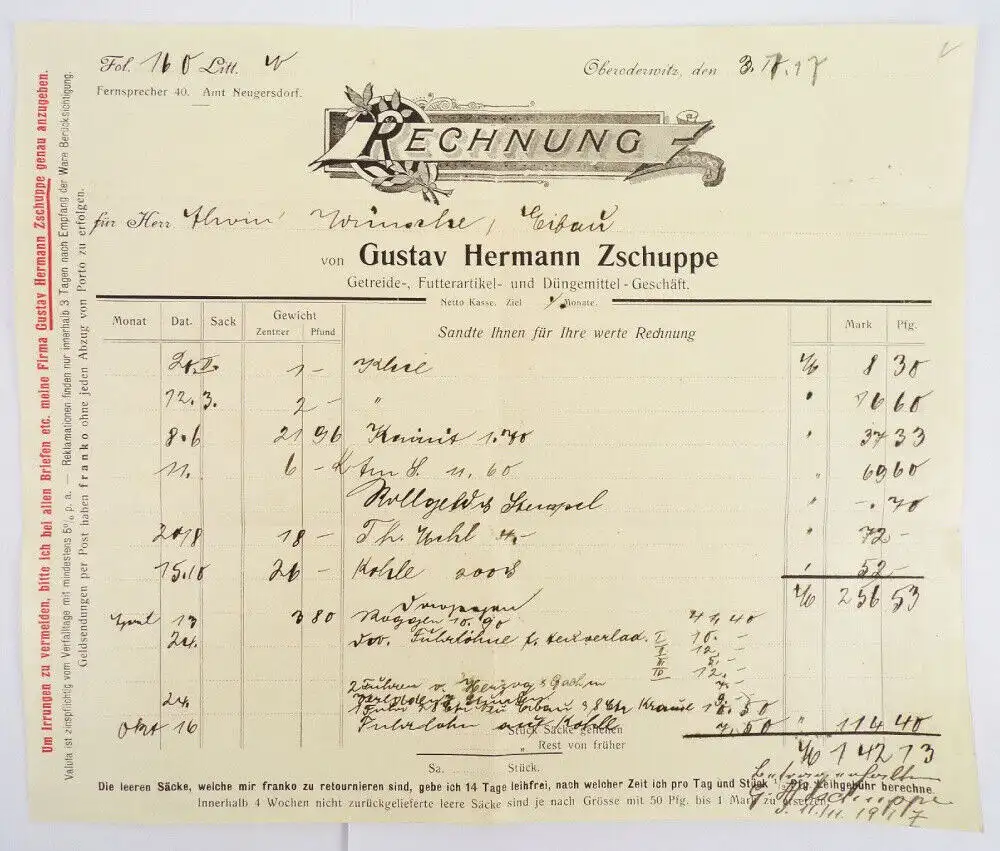 Fol. 160 Litt. W
Oberoderwitz, den 3. 17
Fernsprecher 40. Amt Neugersdorf.
RECHNUNG
für Herr Alwin Wünsche, Eibau
von Gustav Hermann Zschuppe
Getreide-, Futterartikel- und Düngemittel-Geschäft.
Netto Kasse. Ziel Monate.
Monat Dat. Sack Gewicht Zentner Pfund Sandte Ihnen für Ihre werte Rechnung Mark Pfg.
II. 1 – Kleie M 8 30
12. 3. 2 – " " 16 60
8.6 21 96 Kainit 1.70 " 37 33
11. 6 – 11.60 " 69 60
Rollgeld & Stempel " –. 70
18 18 – Th. Mehl 4.– " 72 –
15.10 26 – Kohle 200 " 52 –
M 256 53
Dagegen
13 3 80 Roggen 10.90 41.40
24. Fuhrlöhne I 10. –
II 12. –
III 5. –
IV 12. –
2 Fuhren v. Herzog
24. 1 Fuhr Eibau Krause 10.50
Okt 16 Fuhrlohn auf Kohle 7.50 " 114 40
Stück Säcke gehen
" Rest von früher
M 142 13
Sa. Stück.
Betrag erhalten
G. H. Zschuppe
11/11 1917
Die leeren Säcke, welche mir franko zu retournieren sind, gebe ich 14 Tage leihfrei, nach welcher Zeit ich pro Tag und Stück 1/2 Pfg. Leihgebühr berechne.
Innerhalb 4 Wochen nicht zurückgelieferte leere Säcke sind je nach Grösse mit 50 Pfg. bis 1 Mark zu ersetzen.
Um Irrungen zu vermeiden, bitte ich bei allen Briefen etc. meine Firma Gustav Hermann Zschuppe genau anzugeben.
Valuta ist zinspflichtig vom Verfalltage mit mindestens 5% p. a. — Reklamationen finden nur innerhalb 3 Tagen nach Empfang der Ware Berücksichtigung.
Geldsendungen per Post haben franko ohne jeden Abzug von Porto zu erfolgen.